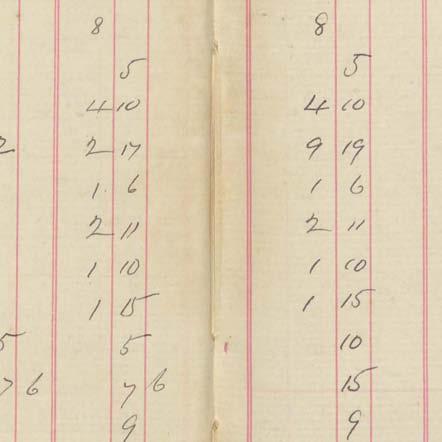 8 8
5 5
4 10 4 10
2 2 17 9 19
1 6 1 6
2 11 2 11
1 10 1 10
1 15 1 15
5 5 10
7 6 7 6 15
9 9